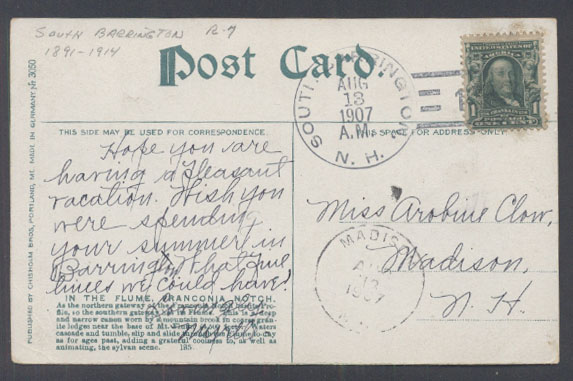 SOUTH BARRINGTON R-7
1891-1914
Post Card.
SOUTH BARRINGTON
AUG
13
1907
A.M.
N. H.
UNITED STATES OF AMERICA
1
THIS SIDE MAY BE USED FOR CORRESPONDENCE.
THIS SPACE FOR ADDRESS ONLY.
PUBLISHED BY CHISHOLM BROS, PORTLAND, ME. MADE IN GERMANY. № 3050
Hope you are
having a pleasant
vacation. Wish you
were spending
your summer in
Barrington. What fine
times we could have!
Miss Arobine Clow,
Madison,
N. H.
MADISON
AUG
13
1907
IN THE FLUME, FRANCONIA NOTCH.
As the northern gateway of the Franconia Notch is the Pro-
file, so the southern gateway is the Flume. This is a deep
and narrow ravine worn by a mountain brook in coarse gran-
ite ledges near the base of Mt. Waters
cascade and tumble, slip and slide to-day
as for ages past, adding a grateful coolness to, as well as
animating, the sylvan scene. 185.